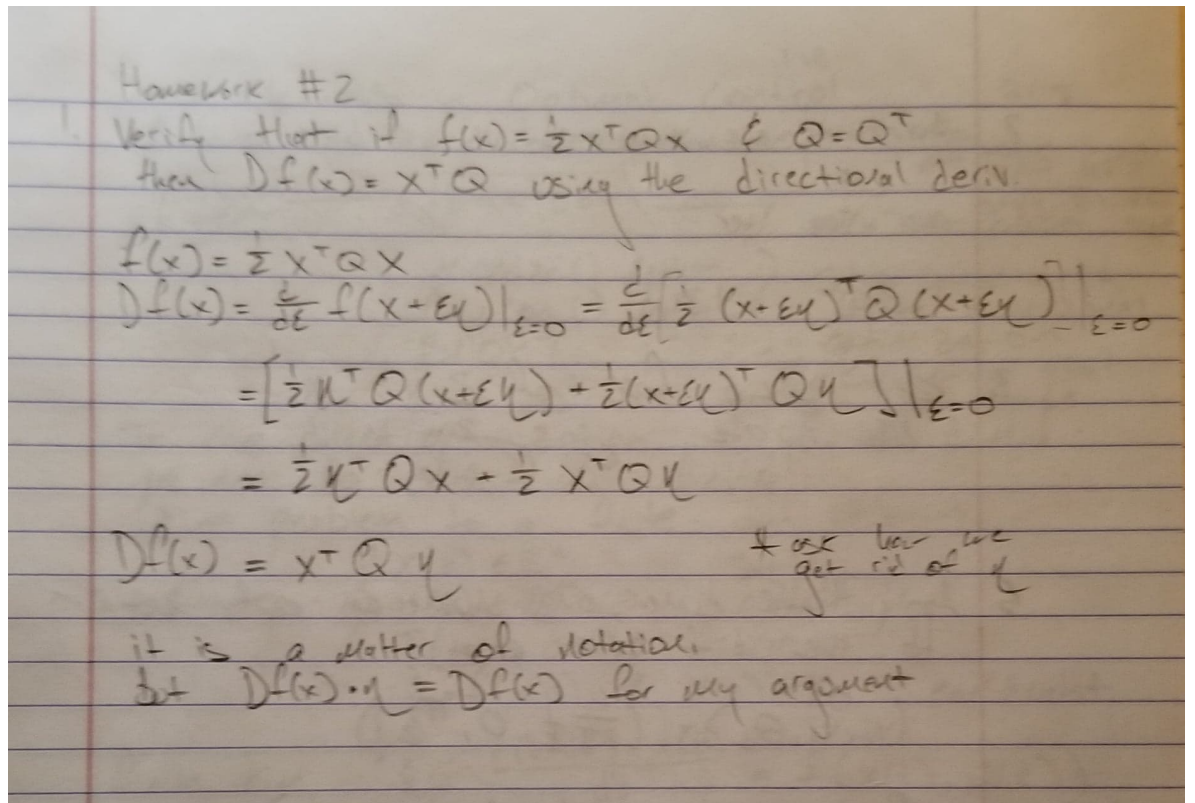 Homework #2
1. Verify that if f(x) = ½ xᵀQx & Q = Qᵀ
then Df(x) = xᵀQ using the directional deriv.
f(x) = ½ xᵀQx
Df(x) = d/dε f(x+εη)|ε=0 = d/dε [½ (x+εη)ᵀ Q (x+εη)]|ε=0
= [½ ηᵀ Q (x+εη) + ½ (x+εη)ᵀ Qη]|ε=0
= ½ ηᵀ Q x + ½ xᵀ Q η
Df(x) = xᵀ Q η
* ask how we
get rid of η
it is a matter of notation.
let Df(x)·η = Df(x) for my argument